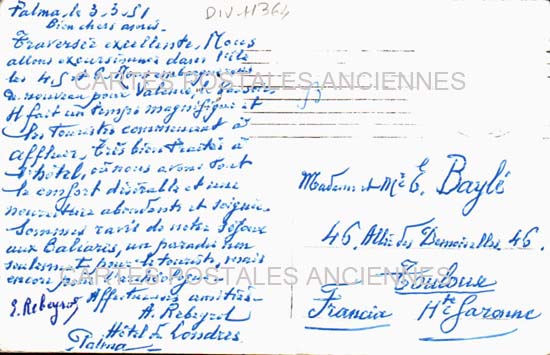 Palma, le 3.3.51
DIV-11364
Bien chers amis.
Traversée excellente, Nous
allons excursionner dans l'île
les 4, 5 et 6 et
de nouveau pour Valence, ce
Il fait un temps magnifique et
les touristes commencent à
affluer. Très bien traités à
l'hôtel, où nous avons tout
le confort désirable et une
nourriture abondante et soignée.
Sommes ravis de notre séjour
aux Baléares, un paradis non
seulement pour le touriste, mais
encore pour l'archéologue.
Affectueuses amitiés
E. Rebeyrol A. Rebeyrol
Hôtel de Londres
Palma
Madame et Mr E. Baylé
46, Allée des Demoiselles, 46.
Toulouse
Francia Hte Garonne
CARTES POSTALES ANCIENNES
CARTES POSTALES ANCIENNES